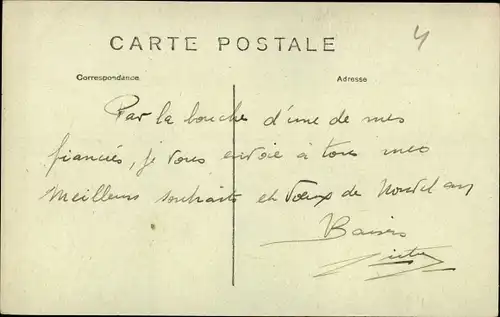 4
CARTE POSTALE
Correspondance
Adresse
Par la bouche d'une de mes
fiancés, je vous envoie à tous mes
meilleurs souhaits et vœux de Nouvel an
Baisers